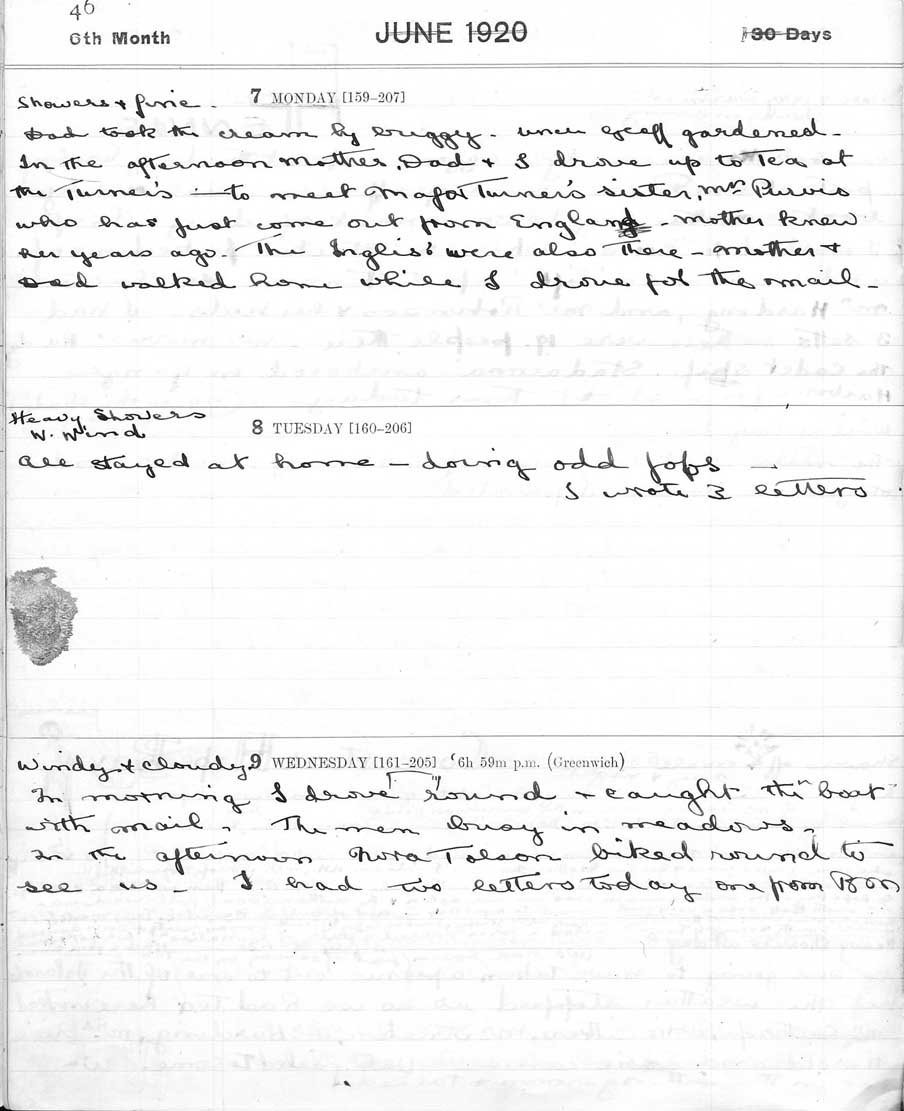 46
6th Month JUNE 1920 30 Days
Showers & fine. 7 MONDAY [159–207]
Dad took the cream by buggy. Uncle Geoff gardened –
In the afternoon Mother, Dad & I drove up to Tea at
the Turner's – to meet Major Turner's sister, Mrs Purvis
who has just come out from England – Mother knew
her years ago. The Inglis' were also there – Mother &
Dad walked home while I drove for the mail –
Heavy Showers
W. Wind 8 TUESDAY [160–206]
All stayed at home – doing odd jobs –
I wrote 3 letters
Windy & cloudy 9 WEDNESDAY [161–205] 6h 59m p.m. (Greenwich)
In morning I drove round & caught the boat
with mail. The men busy in meadows.
In the afternoon Nora Tolson biked round to
see us – I had two letters today one from